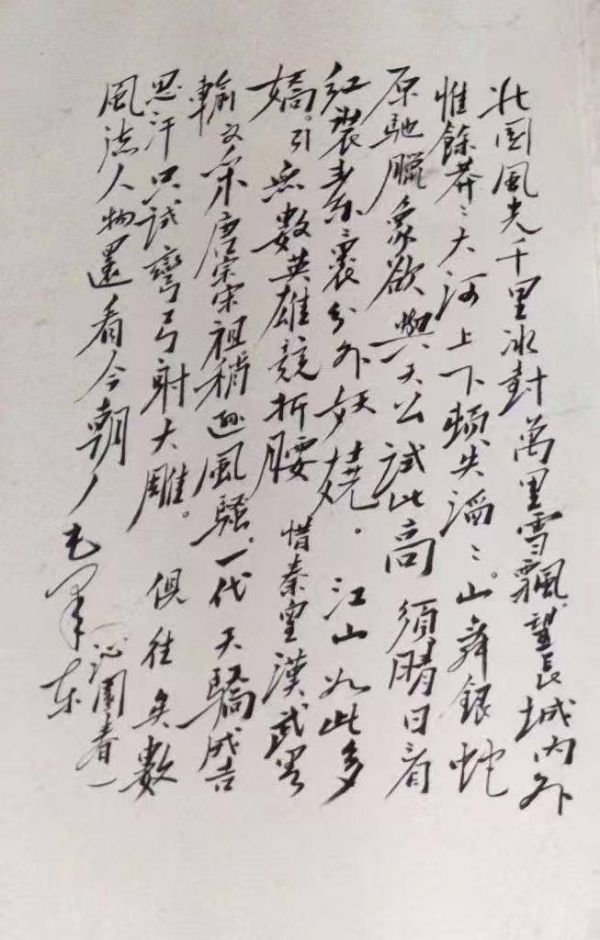 北国風光千里冰封萬里雪飄望長城内外
惟餘莽〻大河上下頓失滔〻。山舞銀蛇
原馳臘象欲與天公試比高 須晴日看
红裝素裹分外妖嬈. 江山如此多
嬌。引無數英雄競折腰 惜秦皇漢武畧
輸文采唐宗宋祖稍遜風騷.一代天驕成吉
思汗只試彎弓射大雕。 俱往矣數
風流人物還看今朝/毛澤东
(沁園春)